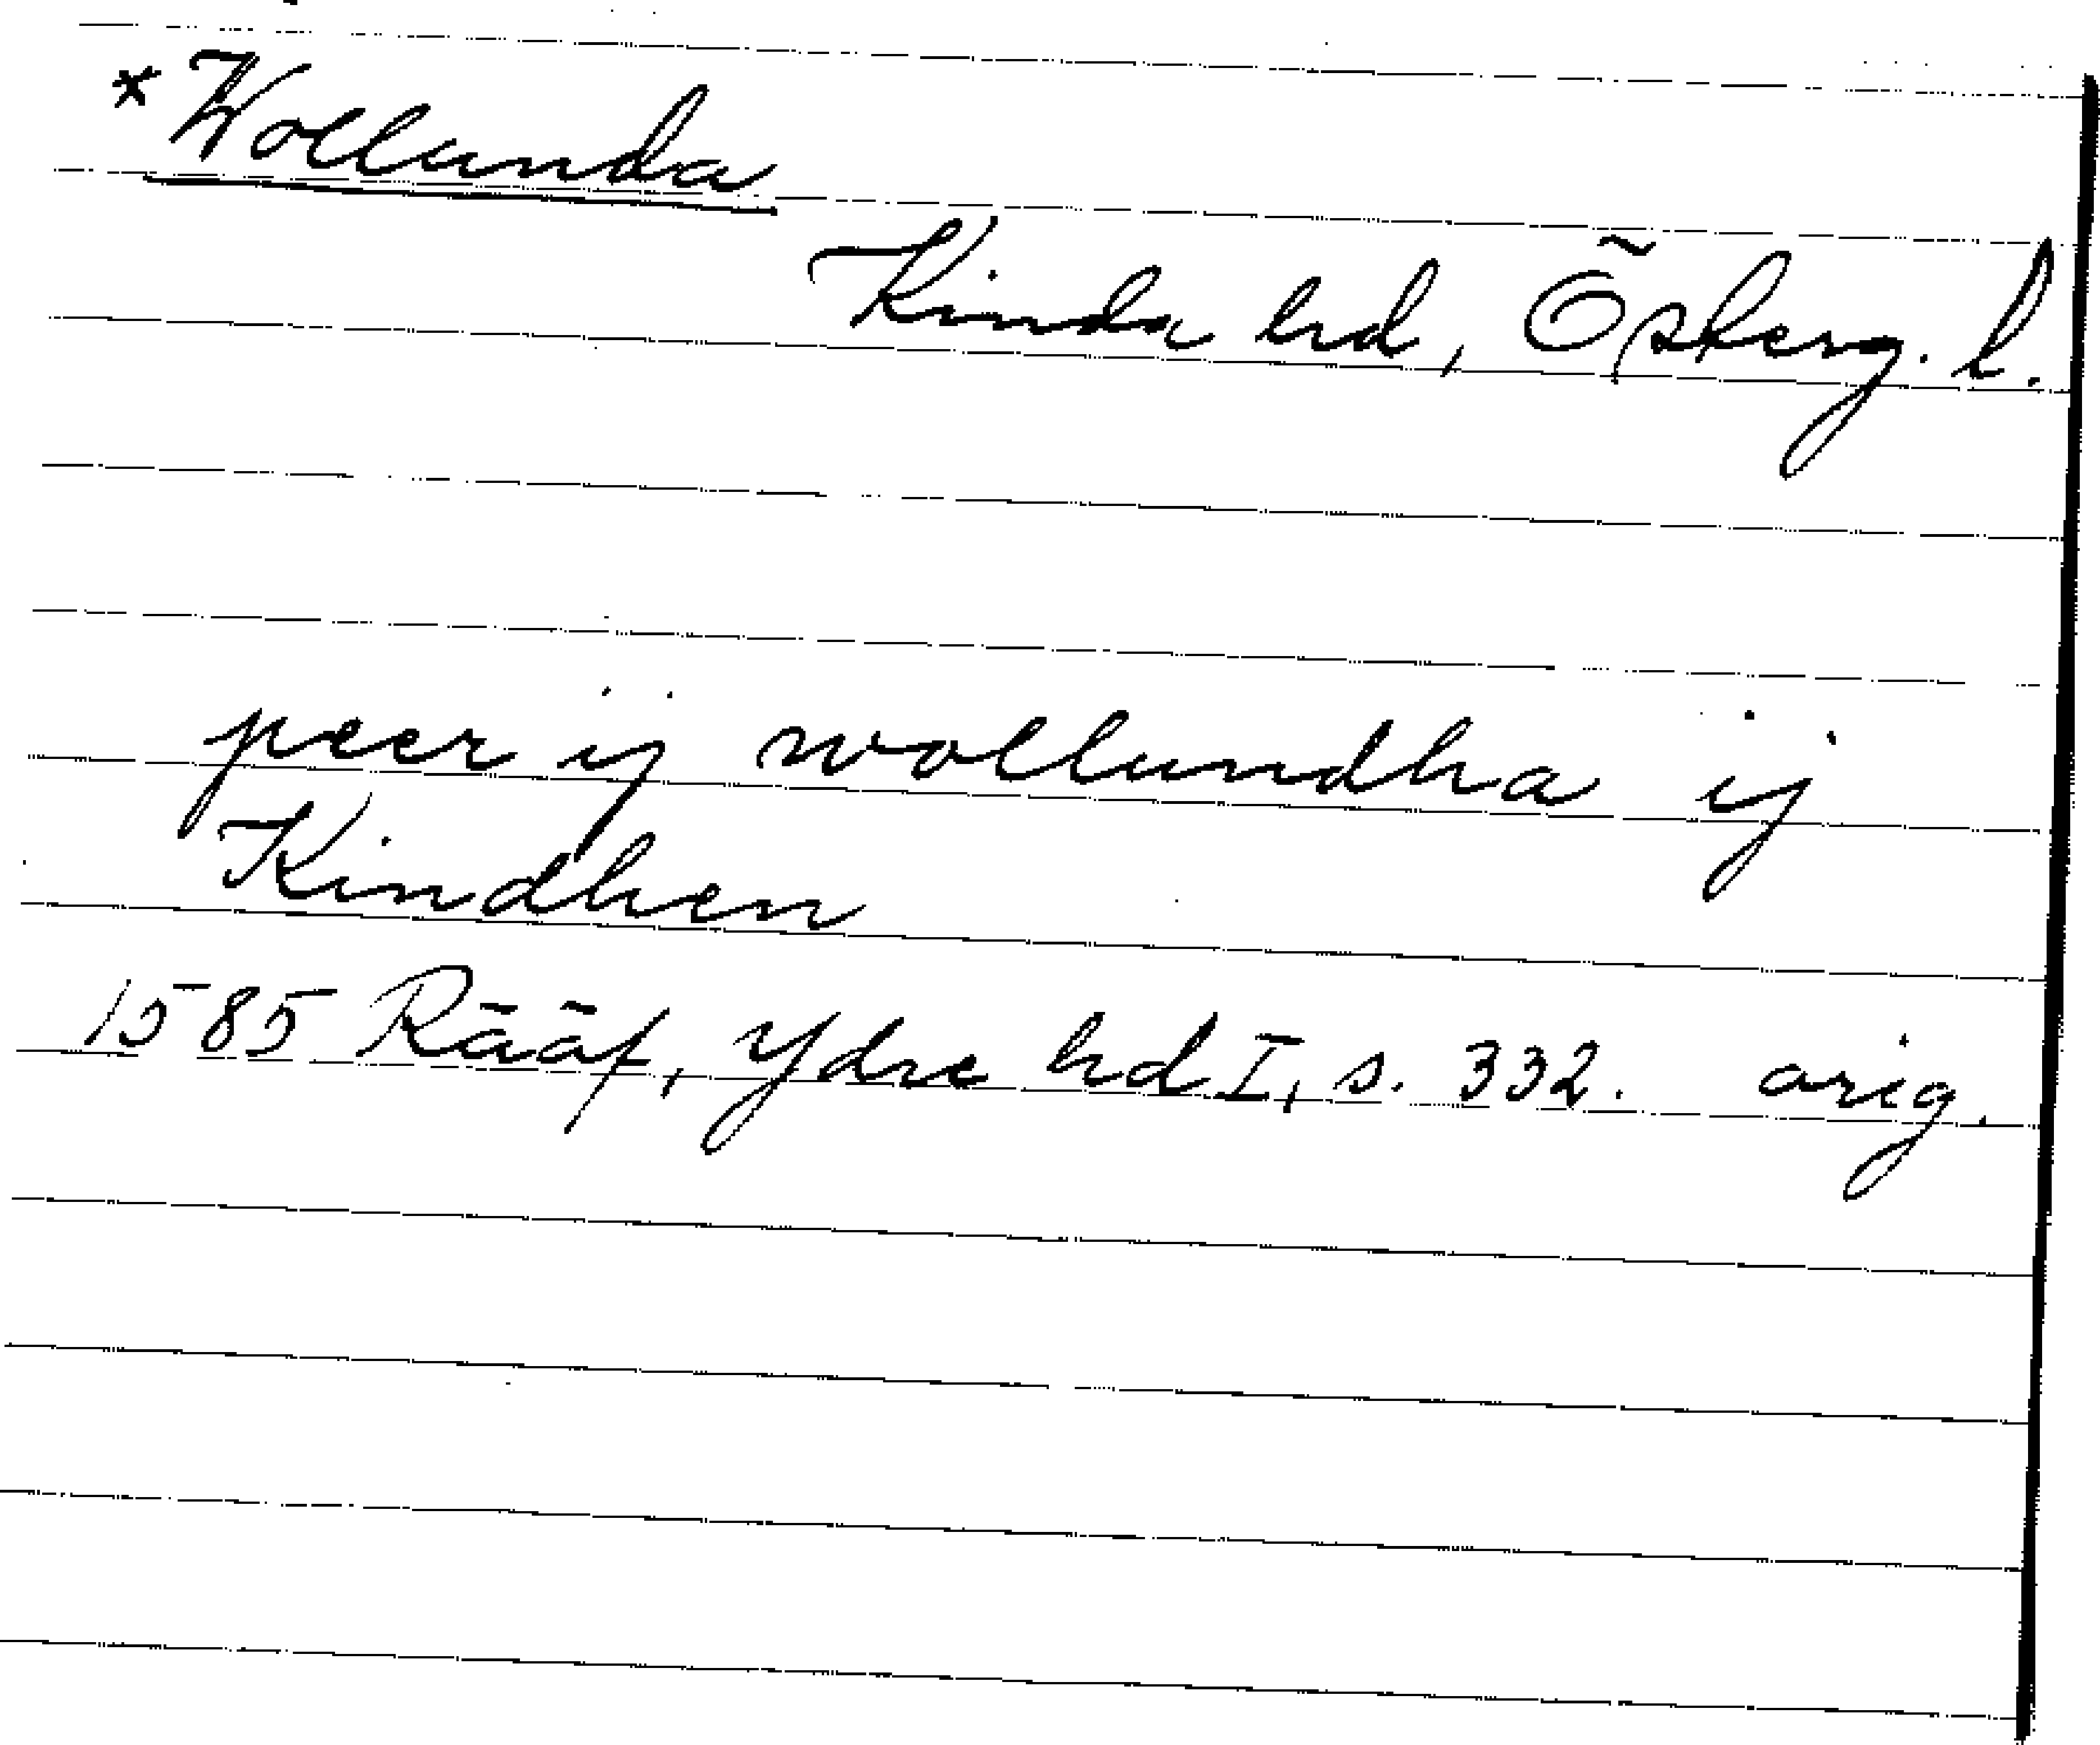 *Wollunda
Kinda hd, Östberg. l.
peer ij wollundha ij
Kindhen
1585 Rääf, Ydre hd I, s. 332. orig.